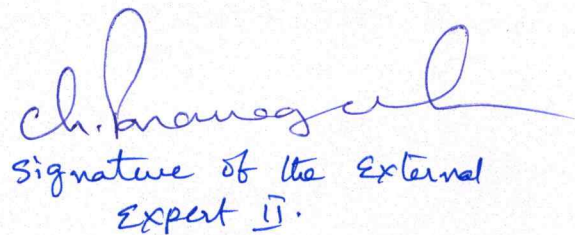 Ch.
Signature of the External
Expert II.